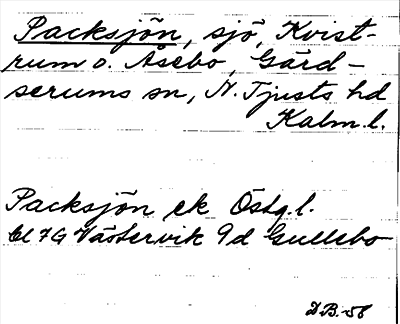 Packsjön, sjö, Kvist-
rum o. Åsebo, Gärd-
serums sn, N. Tjusts hd
Kalm. l.
Packsjön ek Östg. l.
bl 7G Västervik 9d Gullebo
D.B. -56